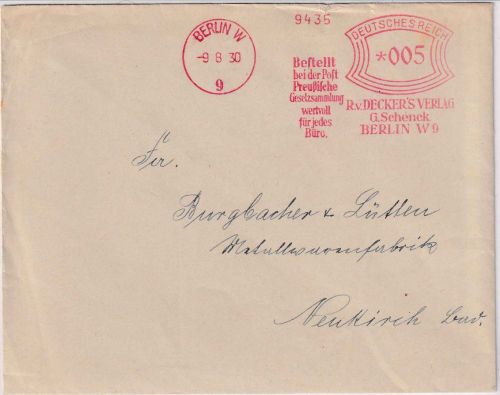 BERLIN W
-9 8 30
9
9435
Bestellt
bei der Post
Preußische
Gesetzsammlung
wertvoll
für jedes
Büro.
DEUTSCHES REICH
*005
R.v.DECKER'S VERLAG
G.Schenck
BERLIN W 9
Fa.
Burgbacher & Lütten
Metallwarenfabrik
Neukirch Bad.